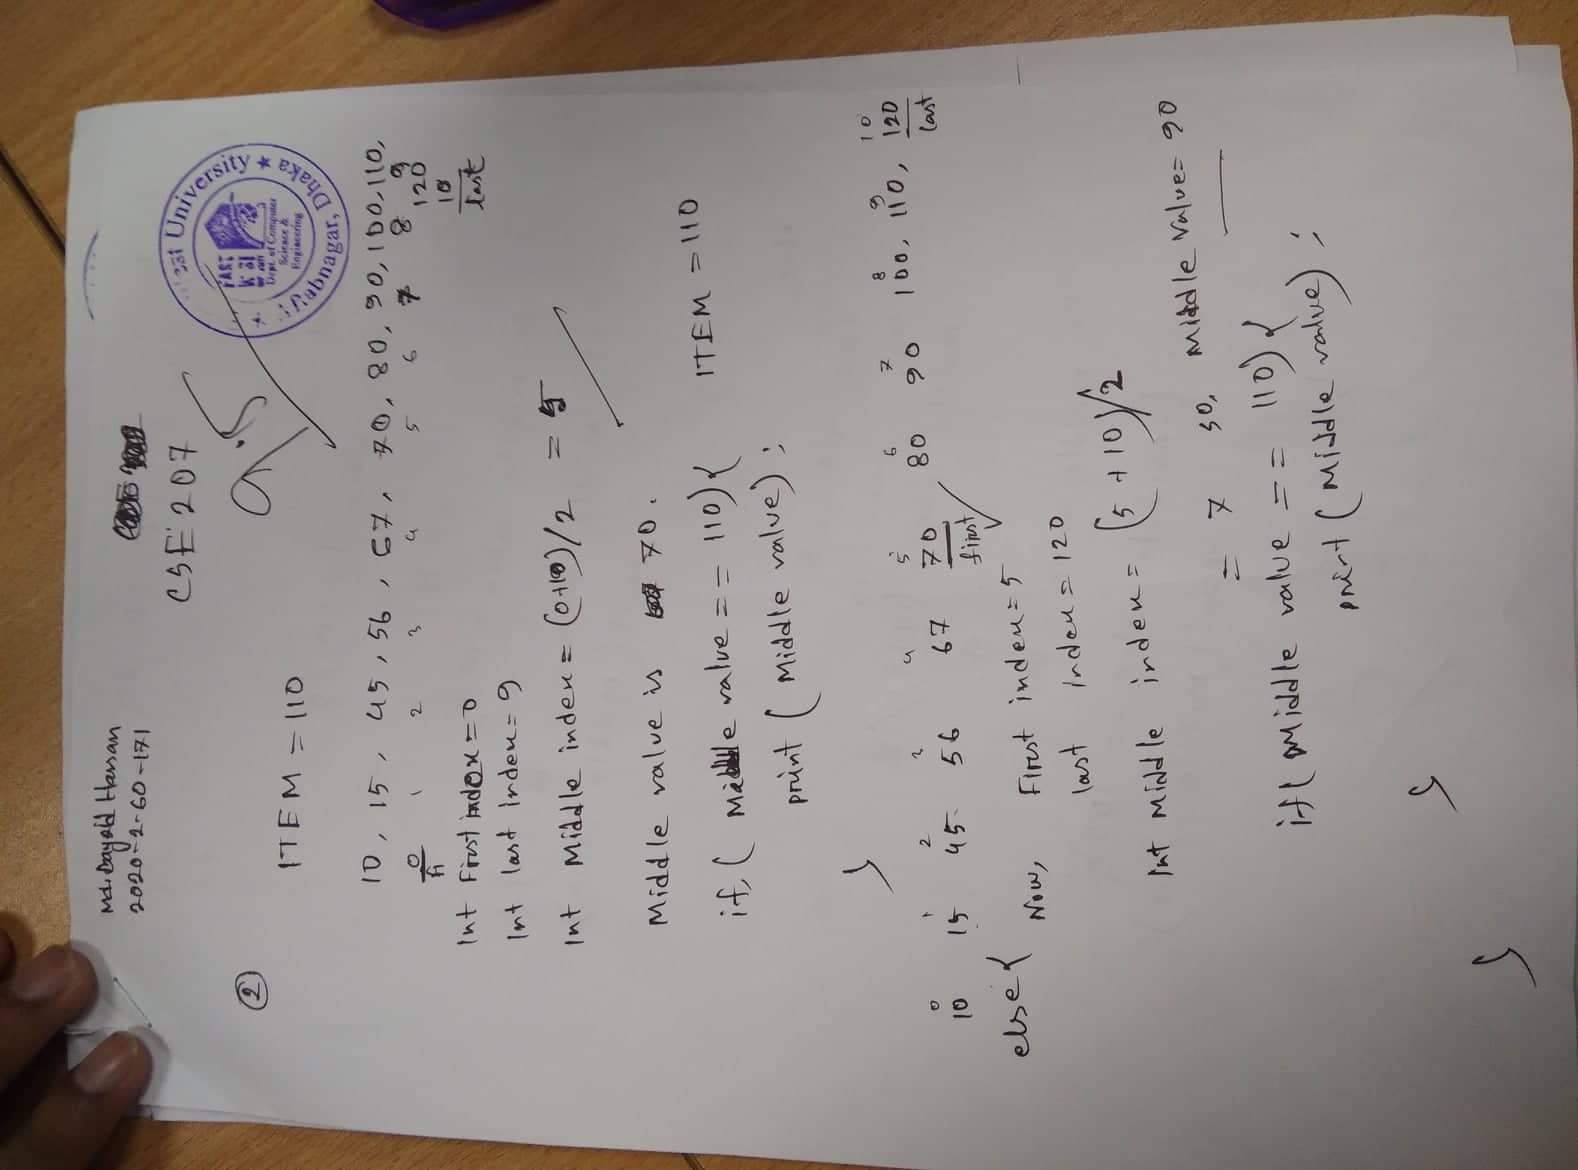 Md. Bayeld Hassan
2020-2-60-171
CSE 207
9.5
East University
EAST
Dept. of Computer
Science &
Engineering
Aftabnagar, Dhaka
2
ITEM = 110
10, 15, 45, 56, 67, 70, 80, 90, 100, 110,
0 1 2 3 4 5 6 7 8 9
120
10
last
Int First index = 0
Int last index = 9
Int Middle index = (0+10)/2 = 5
Middle value is 70.
if, ( Middle value == 110) { ITEM = 110
print ( Middle value) ;
}
0 1 2 3 4 5 6 7 8 9 10
10 15 45 56 67 70 80 90 100, 110, 120
first last
else {
Now, First index = 5
last index = 120
Int Middle index = (5 + 10)/2
= 7 so, Middle value = 90
if ( Middle value == 110) {
print ( Middle value) ;
}
}